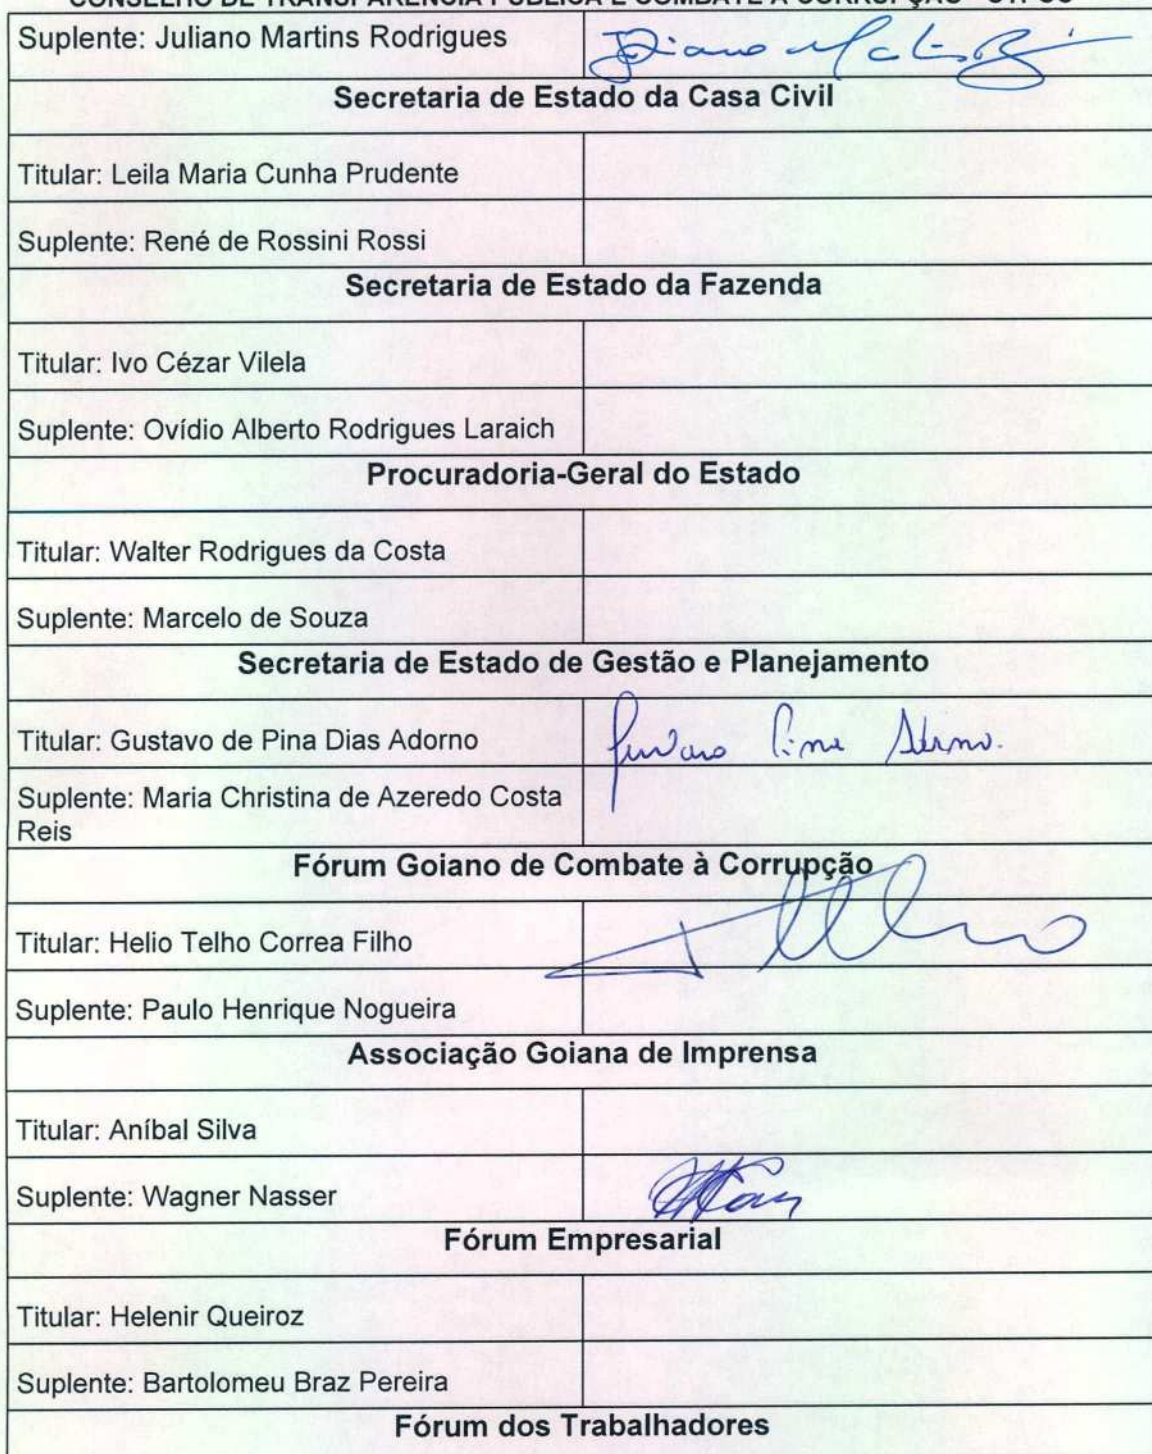 CONSELHO DE TRANSPARÊNCIA PÚBLICA E COMBATE À CORRUPÇÃO - CTPCC
Suplente: Juliano Martins Rodrigues
Secretaria de Estado da Casa Civil
Titular: Leila Maria Cunha Prudente
Suplente: René de Rossini Rossi
Secretaria de Estado da Fazenda
Titular: Ivo Cézar Vilela
Suplente: Ovídio Alberto Rodrigues Laraich
Procuradoria-Geral do Estado
Titular: Walter Rodrigues da Costa
Suplente: Marcelo de Souza
Secretaria de Estado de Gestão e Planejamento
Titular: Gustavo de Pina Dias Adorno
Suplente: Maria Christina de Azeredo Costa
Reis
Fórum Goiano de Combate à Corrupção
Titular: Helio Telho Correa Filho
Suplente: Paulo Henrique Nogueira
Associação Goiana de Imprensa
Titular: Aníbal Silva
Suplente: Wagner Nasser
Fórum Empresarial
Titular: Helenir Queiroz
Suplente: Bartolomeu Braz Pereira
Fórum dos Trabalhadores